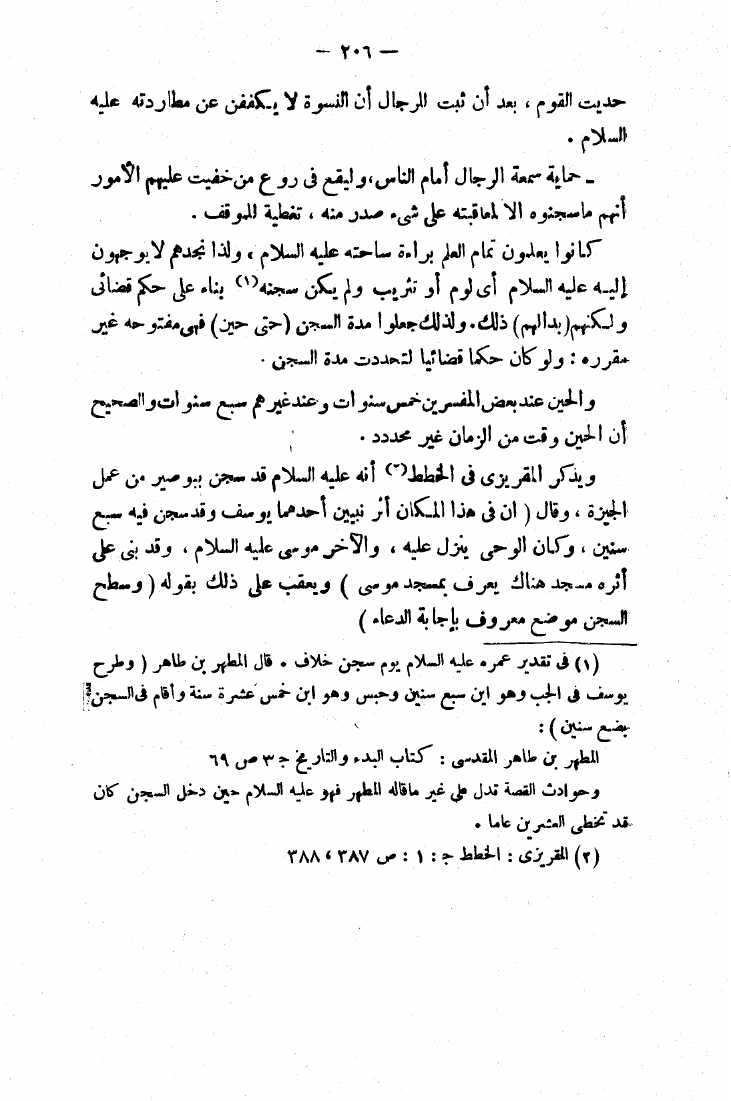 — ٢٠٦ —
حديث القوم ، بعد أن ثبت للرجال أن النسوة لا يكففن عن مطاردته عليه
السلام .
ـ حماية سمعة الرجال أمام الناس،وليقع فى روع من خفيت عليهم الأمور
أنهم ماسجنوه الا لمعاقبته على شىء صدر منه ، تغطية للموقف .
كانوا يعلمون تمام العلم براءة ساحته عليه السلام ، ولذا نجدهم لايوجهون
إليه عليه السلام أى لوم أو تثريب ولم يكن سجنه(١) بناء على حكم قضائى
ولكنهم(بدالهم) ذلك. ولذلك جعلوا مدة السجن (حتى حين) فهى مفتوحه غير
مقرره : ولو كان حكما قضائيا لتحددت مدة السجن .
والحين عند بعض المفسرين خمس سنوات وعند غيرهم سبع سنوات والصحيح
أن الحين وقت من الزمان غير محدد .
ويذكر المقريزى فى الخطط(٢) أنه عليه السلام قد سجن ببوصير من عمل
الجيزة ، وقال ( ان فى هذا المكان أثر نبيين أحدهما يوسف وقد سجن فيه سبع
سنين ، وكان الوحى ينزل عليه ، والآخر موسى عليه السلام ، وقد بنى على
أثره مسجد هناك يعرف بمسجد موسى ) ويعقب على ذلك بقوله ( وسطح
السجن موضع معروف بإجابة الدعاء )
(١) فى تقدير عمره عليه السلام يوم سجن خلاف . قال المطهر بن طاهر ( وطرح
يوسف فى الجب وهو ابن سبع سنين وحبس وهو ابن خمس عشرة سنة وأقام فى السجن
بضع سنين ) :
المطهر بن طاهر المقدسى : كتاب البدء والتاريخ ج ٣ ص ٦٩
وحوادث القصة تدل على غير ماقاله المطهر فهو عليه السلام حين دخل السجن كان
قد تخطى العشرين عاما .
(٢) المقريزى : الخطط ج : ١ : ص ٣٨٧ ، ٣٨٨